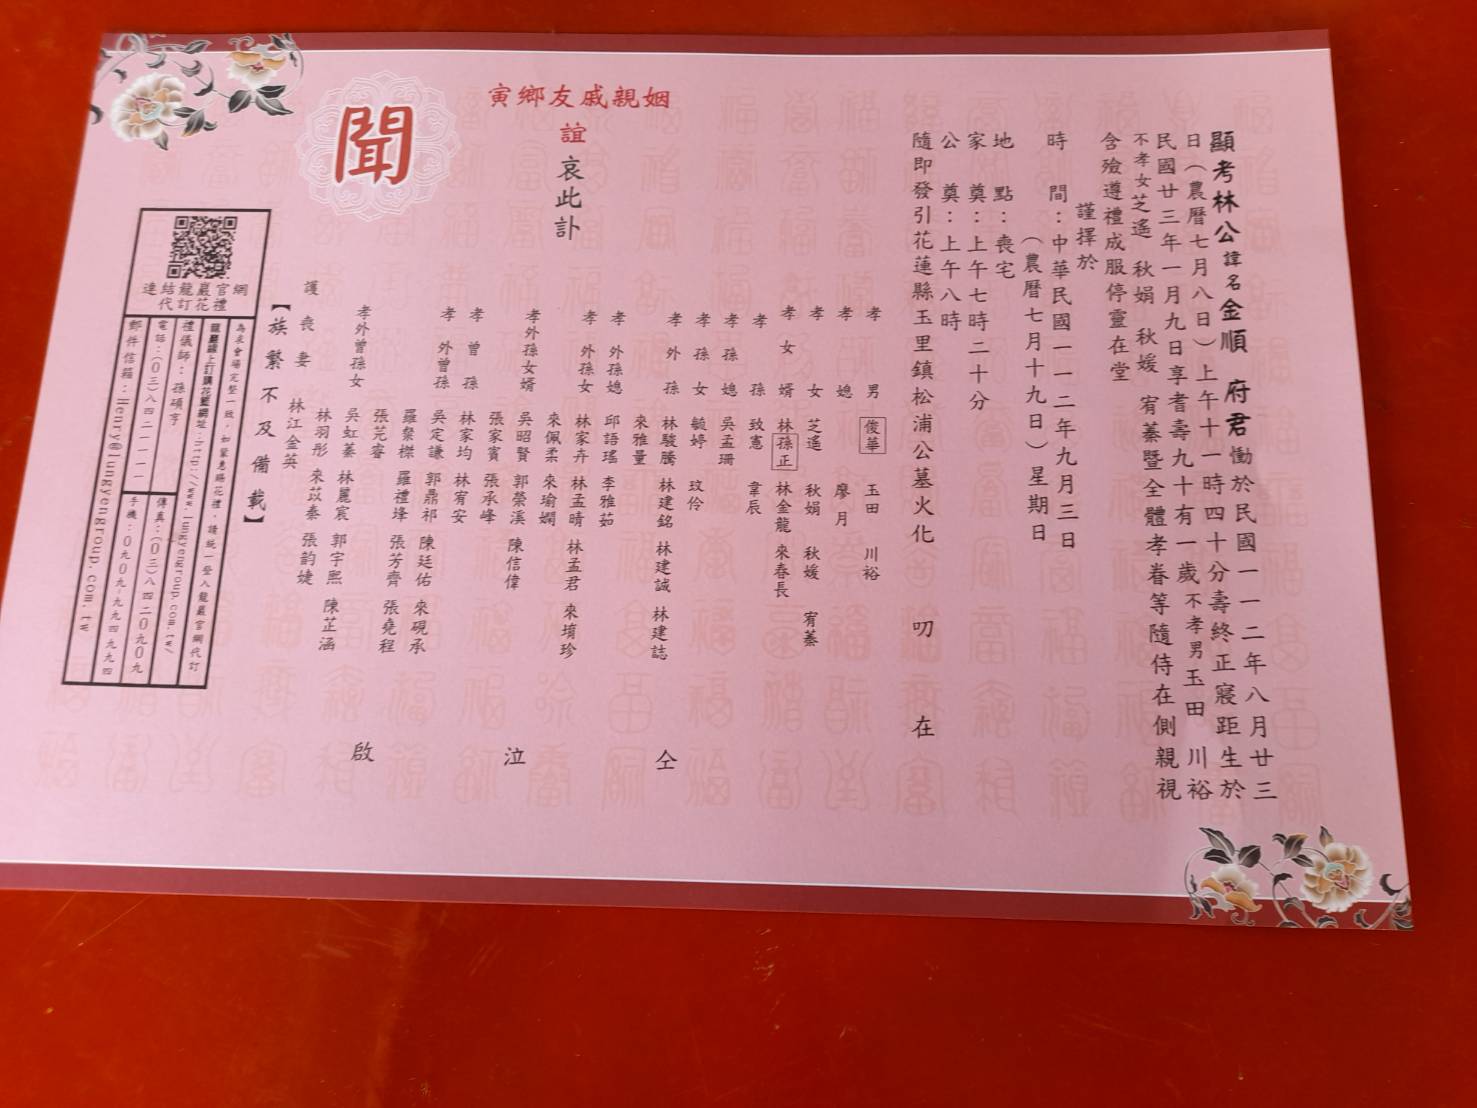 顯考林公諱名金順 府君慟於民國一一二年八月廿三
日(農曆七月八日)上午十一時四十分壽終正寢距生於
民國廿三年一月九日享耆壽九十有一歲不孝男玉田 川裕
不孝女芝遙 秋娟 秋媛 宥蓁暨全體孝眷等隨侍在側親視
含殮遵禮成服停靈在堂
謹擇於
時 間:中華民國一一二年九月三日
(農曆七月十九日)星期日
地 點:喪宅
家 奠:上午七時二十分
公 奠:上午八時
隨即發引花蓮縣玉里鎮松浦公墓火化 叨 在
孝 男 俊華 玉田 川裕
孝 媳 廖月
孝 女 芝遙 秋娟 秋媛 宥蓁
孝 女 婿 林孫正 林金龍 來春長
孝 孫 致憲 韋辰
孝 孫 媳 吳孟珊
孝 孫 女 毓婷 玟伶
孝 外 孫 林駿騰 林建銘 林建誠 林建誌
來雅量
孝 外孫媳 邱語瑤 李雅茹
孝 外孫女 林家卉 林孟晴 林孟君 來堉珍
來佩柔 來瑜嫻
孝外孫女婿 吳昭賢 郭榮溪 陳信偉
張家賓 張承峰
孝 曾 孫 林家均 林宥安
孝 外曾孫 吳定謙 郭鼎祁 陳廷佑 來硯承
羅粲榤 羅禮埄 張芳齊 張堯程
張芫睿
孝外曾孫女 吳虹蓁 林麗宸 郭宇熙 陳芷涵
林羽彤 來苡蓁 張韵婕
護 喪 妻 林江金英
仝 泣 啟
【族繁不及備載】
寅鄉友戚親姻
誼
哀此訃
聞
連結龍巖官網
代訂花禮
為求會場完整一致,如蒙惠賜花禮,請統一登入龍巖官網代訂
龍巖線上訂購花籃網址:http://www.lungyengroup.com.tw/
禮儀師:孫碩亨
電話:(0三)八四二一一一一
傳真:(0三)八四二0九0九
手機:0九0九-九九四九九四
郵件信箱:Henry@lungyengroup.com.tw